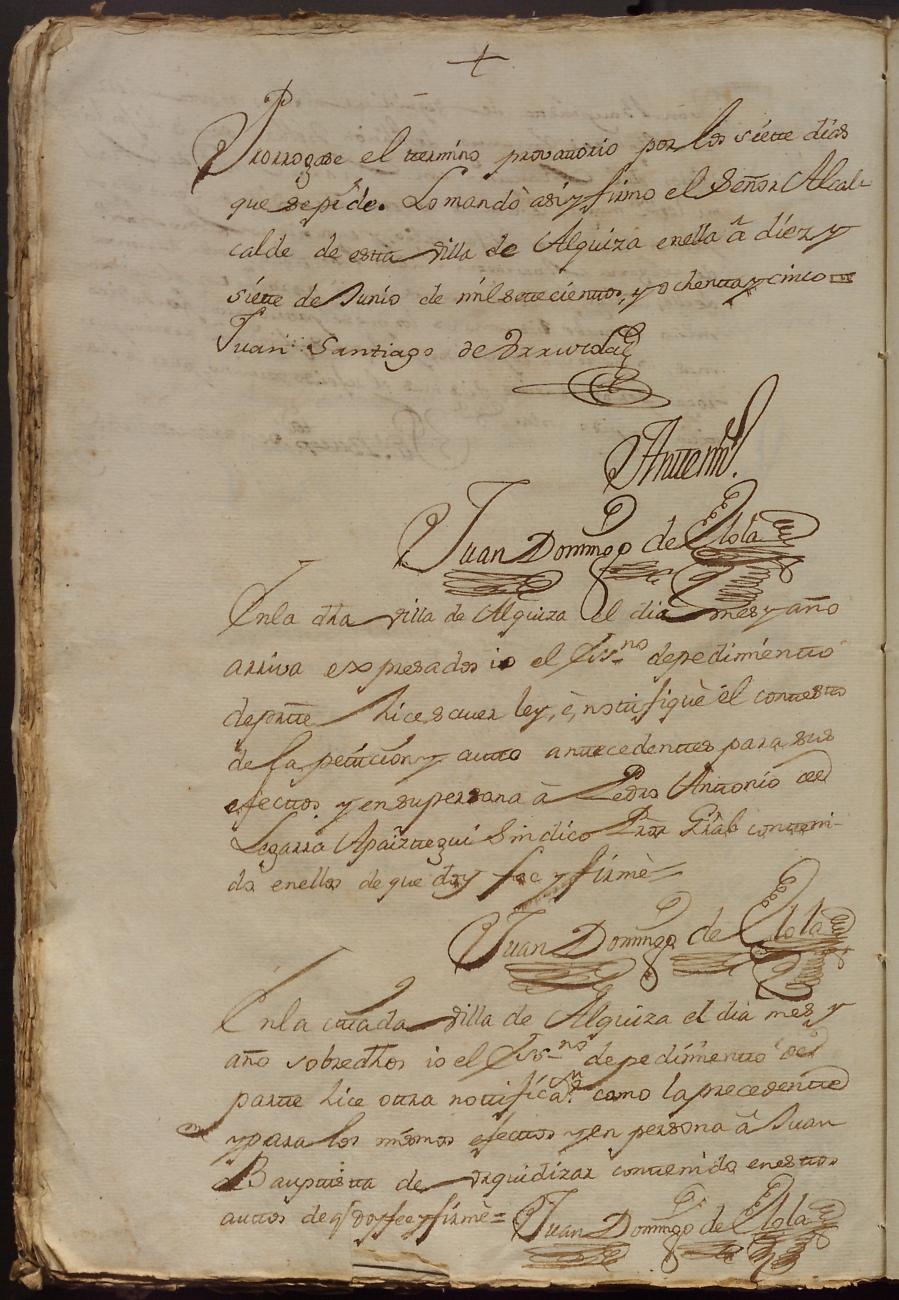 +
Prorrogase el termino provatorio por los siette dias
que se pide. Lo mandò asi y firmo el Señor Alcal-
calde de estta villa de Alquiza en ella â diez y
siette de Junio de mil settecienttos, y ochentta y cinco =
Juan Santiago de
Antte mi.
Juan Domingo de Elola
En la dha villa de Alquiza el dia mes y año
arriva expresados io el Essno de pedimientto
de partte hice saver ley, è nottifiquè el conttestto
de la petticion y autto anttecedenttes para sus
efecttos y en su persona â Pedro Antonio de
Legarra Apaizttegui Sindico Pror Gral conteni-
do en ellos de que doy fee y firmè =
Juan Domingo de Elola
En la cittada villa de Alquiza el dia mes y
año sobredhos io el Essno de pedimientto de
partte hice ottra nottifican. como la precedentte
y para los mismos efecttos y en persona â Juan
Bauptistta de Urquidizar conttenido en esttos
auttos de q doy fee y firmè = Juan Domingo de Elola